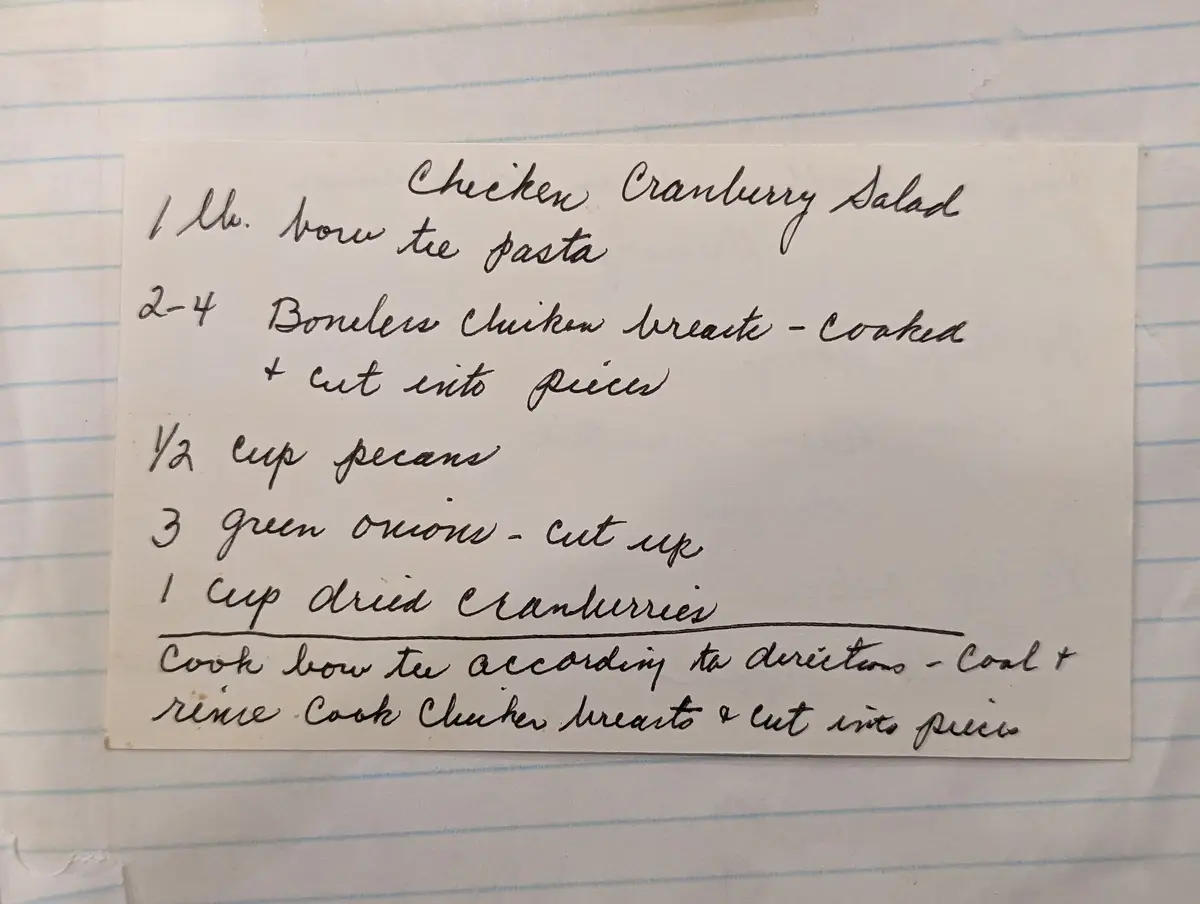 Chicken Cranberry Salad
1 lb. bow tie pasta
2-4 Boneless chicken breasts - cooked
+ cut into pieces
1/2 cup pecans
3 green onions - cut up
1 cup dried cranberries
Cook bow tie according to directions - Cool +
rinse Cook Chicken breasts & cut into pieces